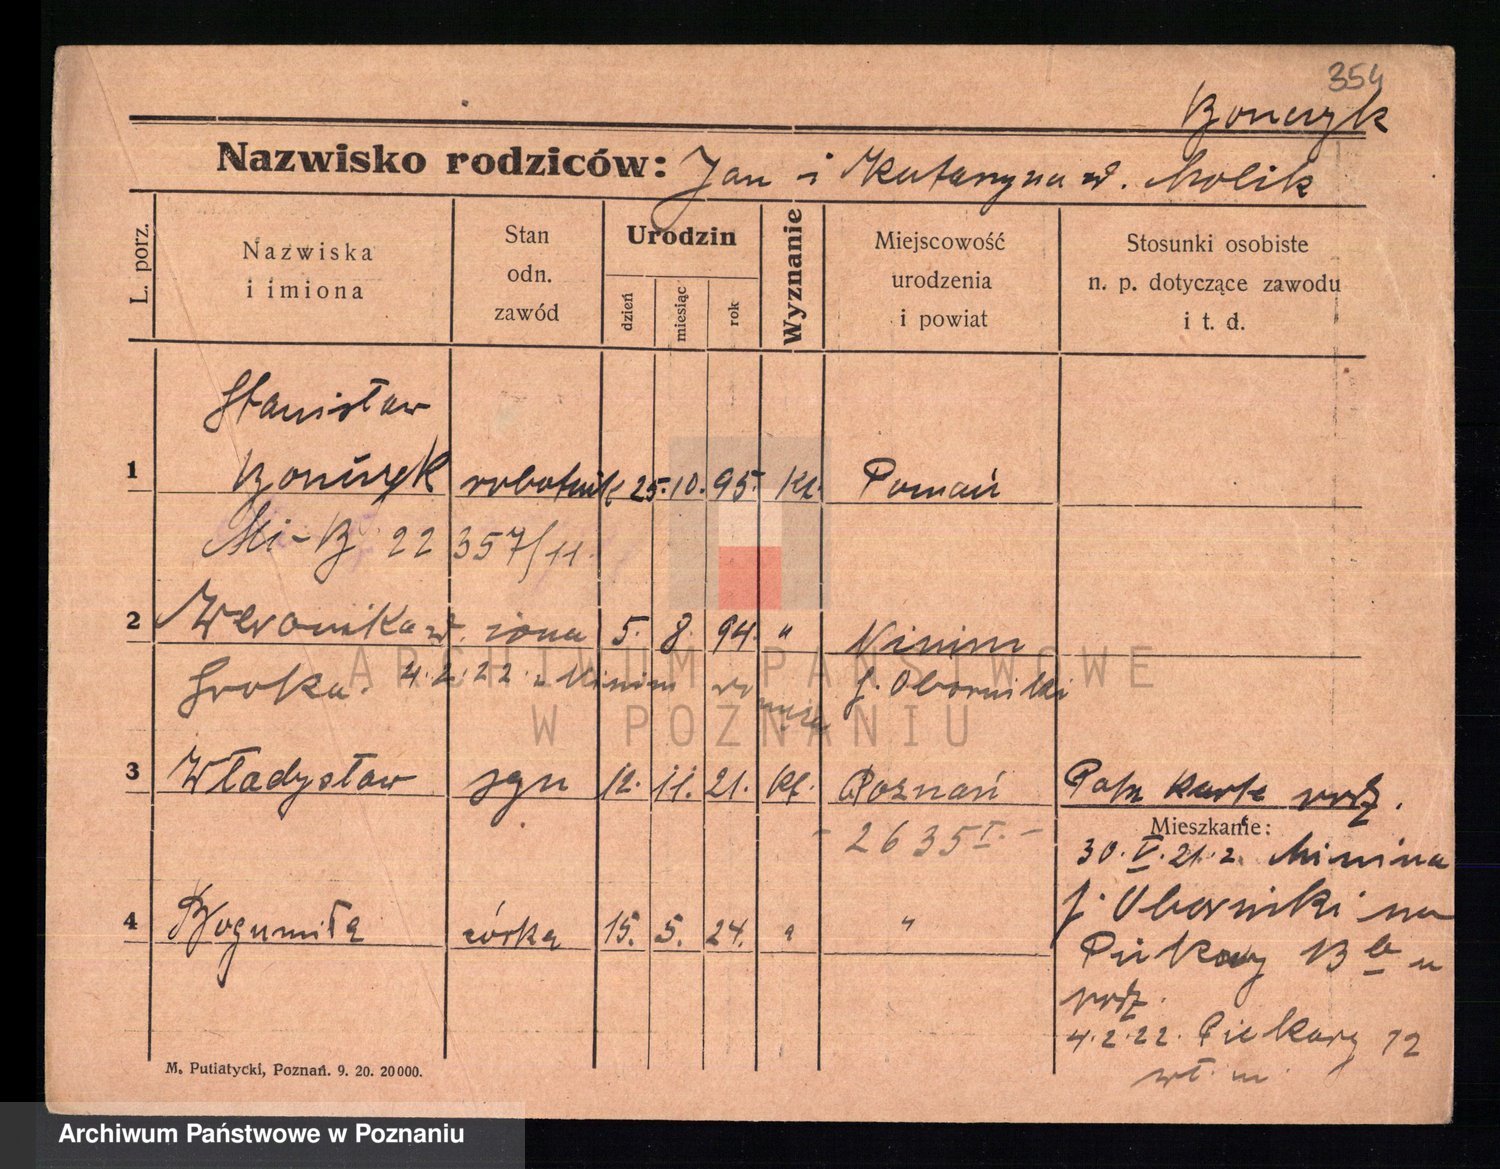 354
Bonczyk
Nazwisko rodziców: Jan i Katarzyna z d. Molik
L. porz.
Nazwiska
i imiona
Stan
odn.
zawód
Urodzin
dzień
miesiąc
rok
Wyznanie
Miejscowość
urodzenia
i powiat
Stosunki osobiste
n. p. dotyczące zawodu
i t. d.
Stanisław
1 Bonczyk robotnik 25. 10. 95. Kt. Poznań
22 357/11.
2 Weronika z d. żona 5. 8. 94. "
Sroka. 4.2.22 p. Oborniki
3 Władysław syn 12. 11. 21. Kt. Poznań Patrz karte rodz.
- 2635 I. -
Mieszkanie:
30. V. 21. z
p. Oborniki na
4 Bogumiła córka 15. 5. 24. " "
Piekary 13 b u
rodz.
4.2.22. Piekary 12
wł. m.
M. Putiatycki, Poznań. 9. 20. 20000.
ARCHIWUM PAŃSTWOWE
W POZNANIU
Archiwum Państwowe w Poznaniu